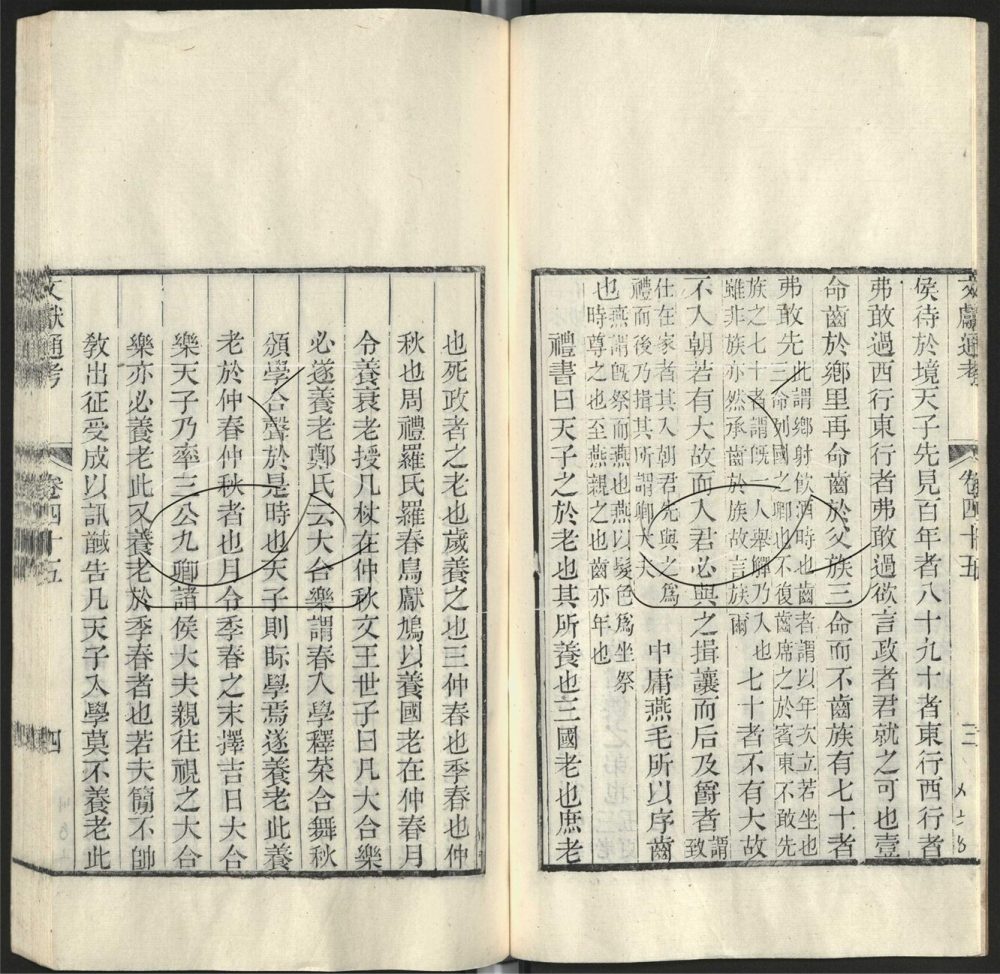 文獻通考 卷四十五 三
侯待於境天子先見百年者八十九十者東行西行者
弗敢過西行東行者弗敢過欲言政者君就之可也壹
命齒於鄉里再命齒於父族三命而不齒族有七十者
弗敢先此謂鄉射飲酒時也齒者謂以年次立若坐也
三命列國之卿也不復齒席之於賓東不敢先
族之七十者謂旣一人舉觶乃入也
雖非族亦然承齒於族故言族爾
七十者不有大故
不入朝若有大故而入君必與之揖讓而后及爵者謂
致
仕在家者其入朝君先與之爲
禮而後乃揖其所謂卿大夫
中庸燕毛所以序齒
也燕謂旣祭而燕也燕以髮色爲坐祭
時尊之也至燕親之也齒亦年也
禮書曰天子之於老也其所養也三國老也庶老
也死政者之老也歲養之也三仲春也季春也仲
秋也周禮羅氏羅春鳥獻鳩以養國老在仲春月
令養衰老授几杖在仲秋文王世子曰凡大合樂
必遂養老鄭氏云大合樂謂春入學釋菜合舞秋
頒學合聲於是時也天子則眎學焉遂養老此養
老於仲春仲秋者也月令季春之末擇吉日大合
樂天子乃率三公九卿諸侯大夫親往視之大合
樂亦必養老此又養老於季春者也若夫簡不帥
敎出征受成以訊馘告凡天子入學莫不養老此
文獻通考 卷四十五 四